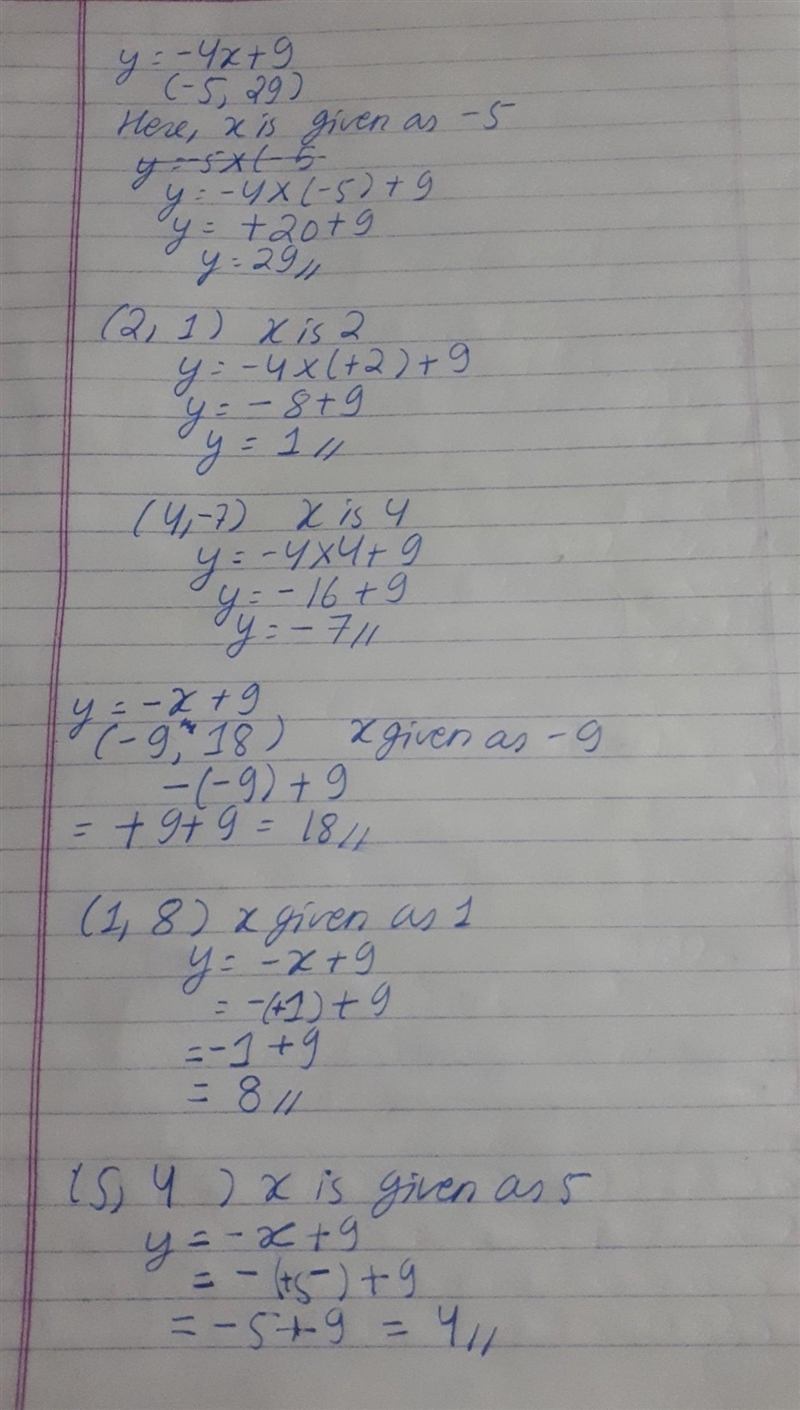 y = -4x + 9
(-5, 29)
Here, x is given as -5
y = -5 x (-5
y = -4 x (-5) + 9
y = +20 + 9
y = 29 //
(2, 1) x is 2
y = -4 x (+2) + 9
y = -8 + 9
y = 1 //
(4, -7) x is 4
y = -4 x 4 + 9
y = -16 + 9
y = -7 //
y = -x + 9
(-9, 18) x given as -9
-(-9) + 9
= +9 + 9 = 18 //
(1, 8) x given as 1
y = -x + 9
= -(+1) + 9
= -1 + 9
= 8 //
(5, 4) x is given as 5
y = -x + 9
= -(+5) + 9
= -5 + 9 = 4 //